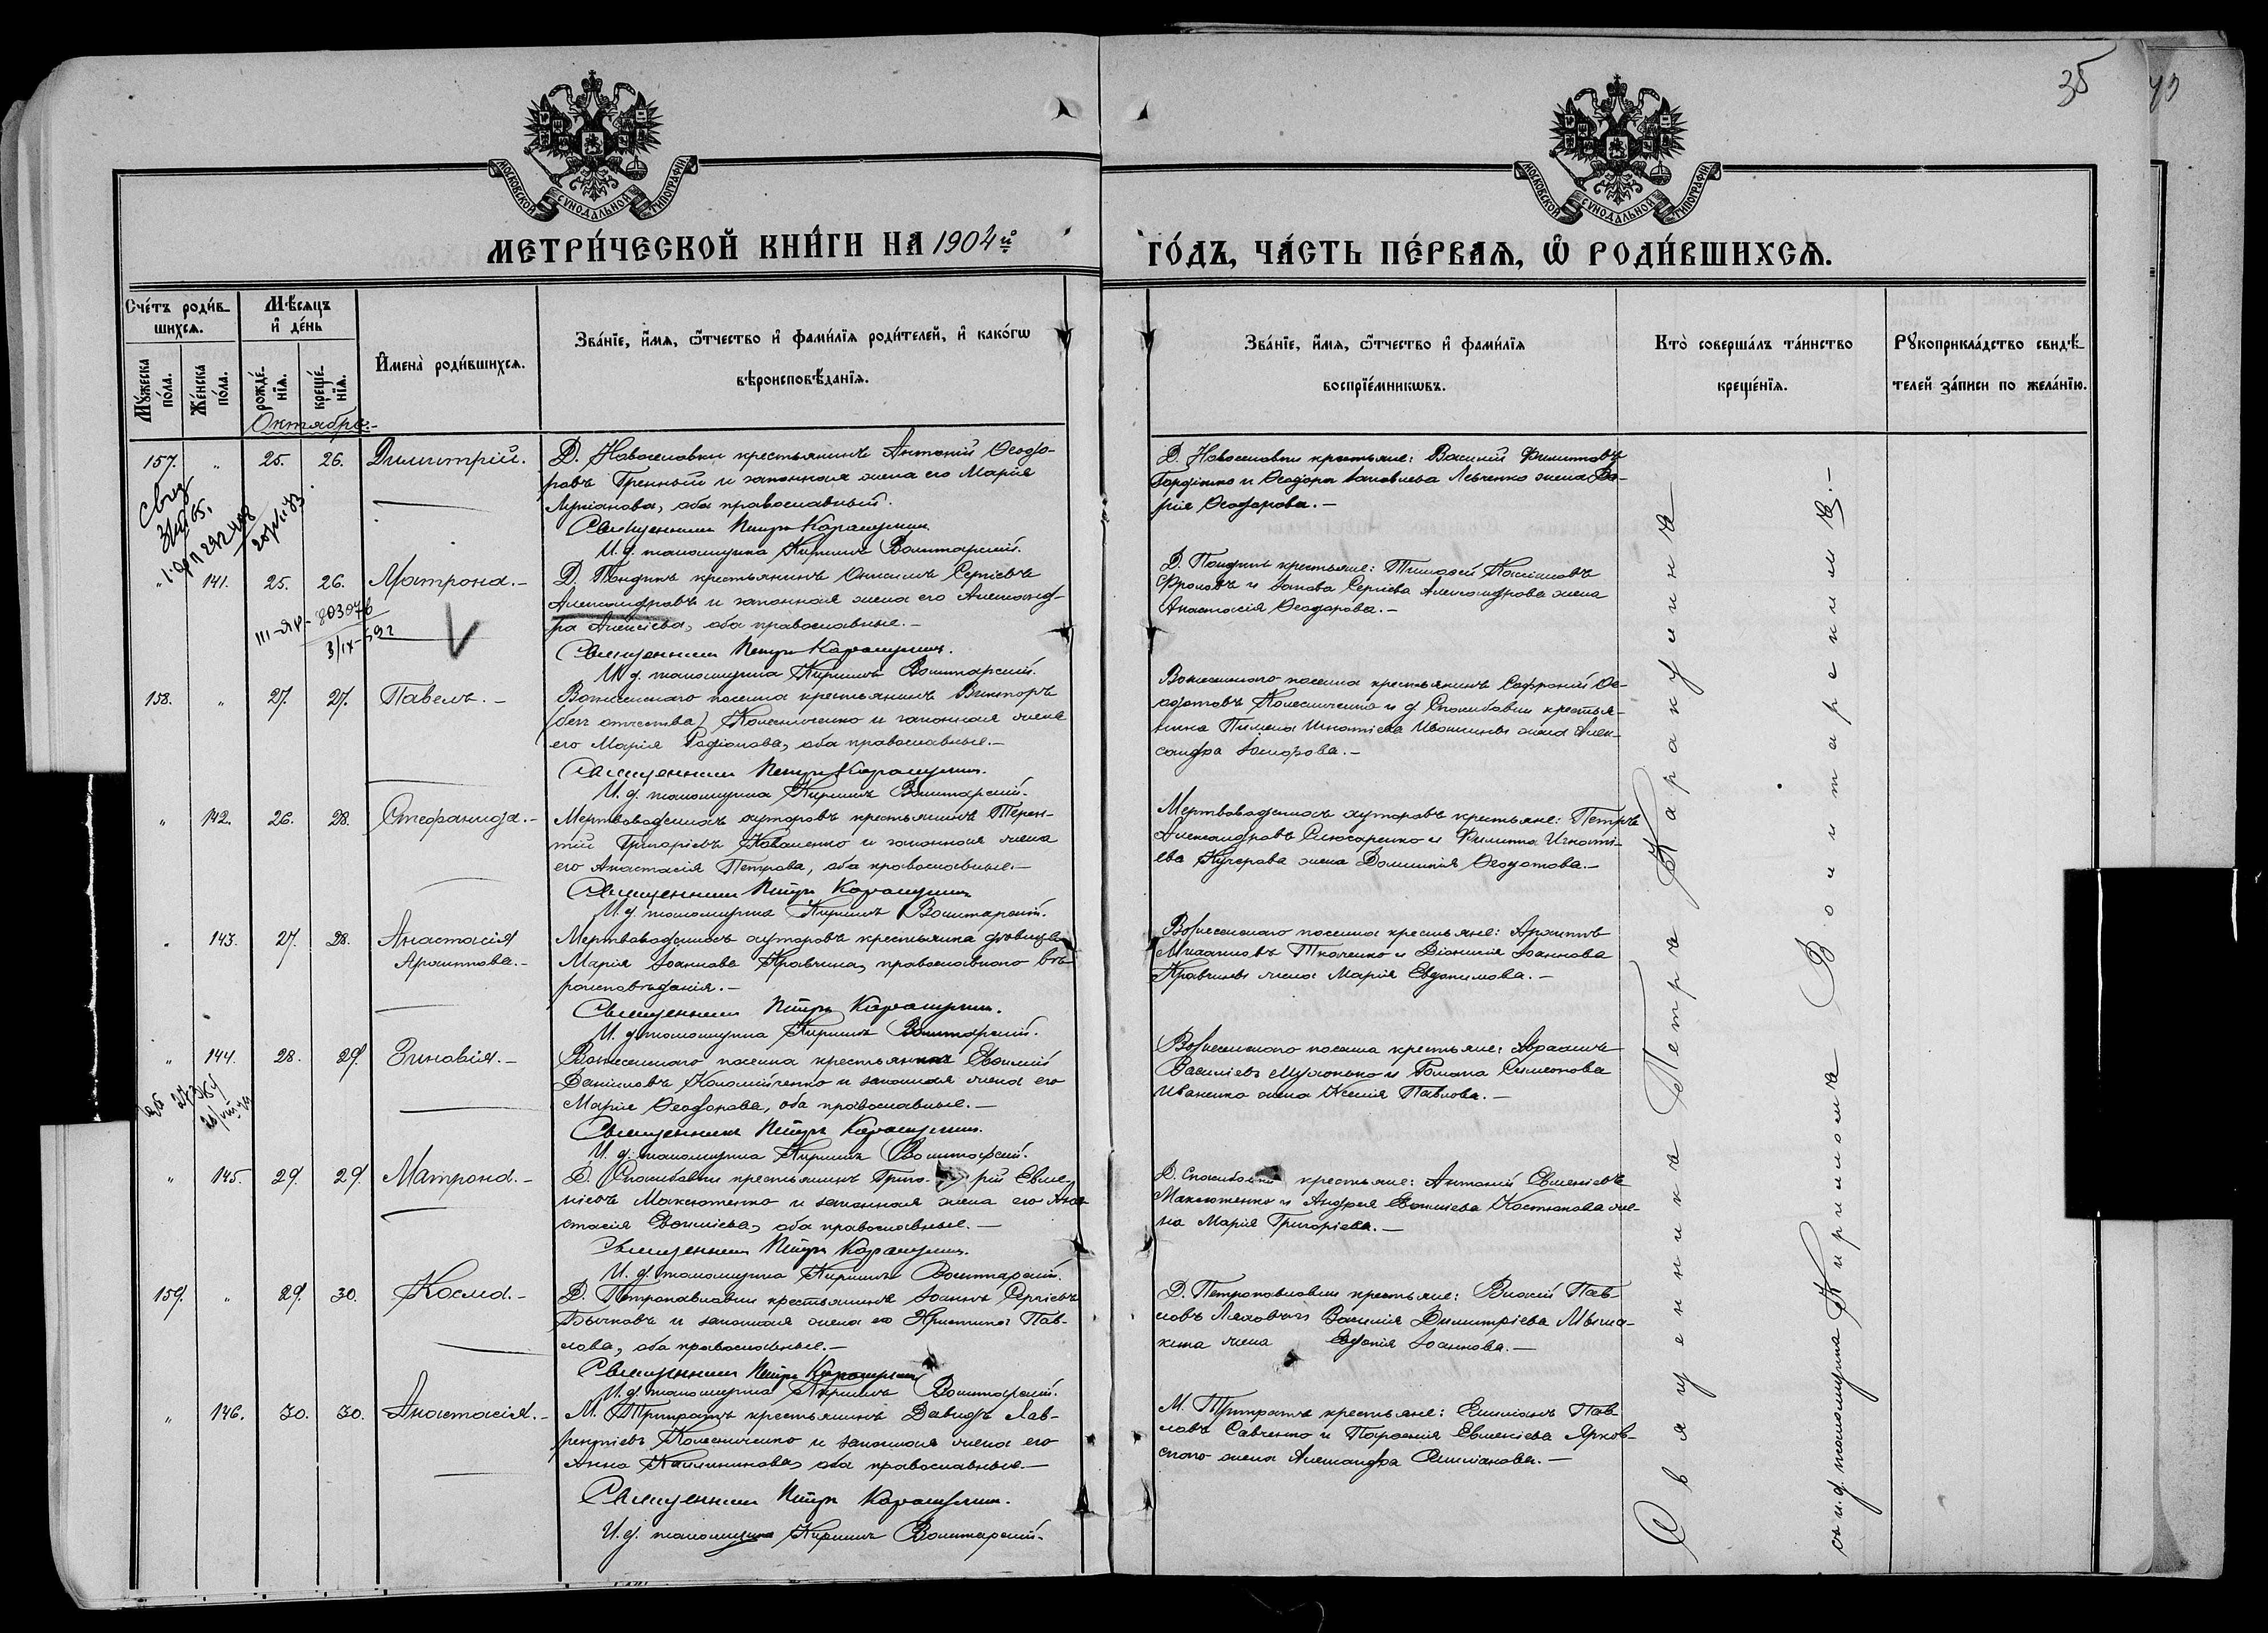 35
МОСКОВСКОЙ СѴНОДАЛЬНОЙ ТИПОГРАФІИ
МОСКОВСКОЙ СѴНОДАЛЬНОЙ ТИПОГРАФІИ
МЕТРИ́ЧЕСКОЙ КНИ́ГИ НА 1904й
ГО́ДЪ, ЧА́СТЬ ПЕ́РВАѦ, Ѽ РОДИ́ВШИХСѦ.
Сче́тъ роди́в-
шихсѧ.
Мꙋ́жеска по́ла.
Же́нска по́ла.
Мѣ́сѧцъ
и҆ де́нь
рожде́-
нїѧ.
креще́-
нїѧ.
И҆мена̀ роди́вшихсѧ.
Зва́нїе, и҆́мѧ, ѻ҆́тчество и҆ фами́лїѧ роди́телей, и҆ како́гѡ
вѣроисповѣ́данїѧ.
Зва́нїе, и҆́мѧ, ѻ҆́тчество и҆ фами́лїѧ
воспрїе́мникѡвъ.
Кто̀ соверша́лъ та́инство
креще́нїѧ.
Рꙋкоприкла́дство свидѣ́-
телей за́писи по жела́нїю.
Октябрь.-
157. " 25. 26. Димитрій.
Д. Новоселовки крестьянинъ Антоній Ѳеодо-
ровъ Гренный и законная жена его Марія
оба православный.
Священникъ Петръ Каракулинъ
И. д. псаломщика Кириллъ Воитарскій.
Д. Новоселовки крестьяне: Василій Филипповъ
и Ѳеодора Іаковлева Левченко жена Да-
рія Ѳеодорова.-
" 141. 25. 26. Матрона.-
Д. крестьянинъ Онисимъ Сергіевъ
Александровъ и законная жена его Александ-
ра Алексіева, оба православные.-
Священникъ Петръ Каракулинъ.
И. д. псаломщика Кириллъ Воитарскій.
Д. крестьяне: Тимоѳей Кассіановъ
Фроловъ и Іакова Сергіева Александрова жена
Анастасія Ѳеодорова.-
158. " 27. 27. Павелъ.-
Вознесенскаго поселка крестьянинъ Викторъ
(безъ отчества) Колесниченко и законная жена
его Марія Родіонова, оба православные.-
Священникъ Петръ Каракулинъ.
И. д. псаломщика Кириллъ Воитарскій.
Вознесенскаго поселка крестьянинъ Софроній Ѳе-
одотовъ Колесниченко и д. Спасибовки крестья-
нина Пимена Игнатіева жена Алек-
сандра
" 142. 26. 28. Стефанида.-
Мертвоводскихъ хуторовъ крестьянинъ Терен-
тій Григоріевъ Коваленко и законная жена
его Анастасія Петрова, оба православные.-
Священникъ Петръ Каракулинъ
И. д. псаломщика Кириллъ Воитарскій.
Мертвоводскихъ хуторовъ крестьяне: Петръ
Александровъ Слюсаренко и Филиппа Игнаті-
ева Кучерова жена Домникія Ѳеодотова.-
" 143. 27. 28. Анастасія
Архиппова.-
Мертвоводскихъ хуторовъ крестьянка дѣвица
Марія Іоаннова Кравчина, православнаго вѣ-
роисповѣданія.-
Священникъ Петръ Каракулинъ.
И. д. псаломщика Кириллъ Воитарскій.
Вознесенскаго поселка крестьяне: Архиппъ
Михаиловъ Ткаченко и Діонисія Іоаннова
Кравчины жена Марія Евдокимова.-
" 144. 28. 29. Зиновія.-
Вознесенскаго поселка крестьянинъ Евѳимій
Даніиловъ Коломійченко и законная жена его
Марія Ѳеодорова, оба православные.-
Священникъ Петръ Каракулинъ.
И. д. псаломщика Кириллъ Воитарскій.
Вознесенскаго поселка крестьяне: Авраамъ
Василіевъ и Романа Симеонова
Иваненко жена Ксенія Павлова.-
" 145. 29. 29. Матрона.-
Д. Спасибовки крестьянинъ Григо-рій Евме-
ніевъ Максютенко и законная жена его Ана-
стасія Евѳиміева, оба православные.-
Священникъ Петръ Каракулинъ.
И. д. псаломщика Кириллъ Воитарскій.
Д. Спасибовки крестьяне: Антоній Евменіевъ
Максютенко и Андрея Евѳиміева Костюкова же-
на Марія Григоріева.-
159. " 29. 30. Косма.-
Д. Петропавловки крестьянинъ Іоаннъ Сергіевъ
Бычковъ и законная жена его Христина Пав-
лова, оба православные.-
Священникъ Петръ Каракулинъ
И. д. псаломщика Кириллъ Воитарскій.
Д. Петропавловки крестьяне: Власій Пав-
ловъ Ляховъ и Василія Димитріева
жена Евдокія Іоаннова.-
" 146. 30. 30. Анастасія.-
М. Трикратъ крестьянинъ Давидъ Лав-
рентіевъ Колесниченко и законная жена его
Анна Каллиникова, оба православные.-
Священникъ Петръ Каракулинъ.
И. д. псаломщика Кириллъ Воитарскій.-
М. Трикратъ крестьяне: Емиліанъ Пав-
ловъ Савченко и Парѳенія Евменіева Ярков-
скаго жена Александра Емиліанова.-
Священника Петра Каракулина
съ и. д. псаломщика Кирилломъ Воитарскимъ.-